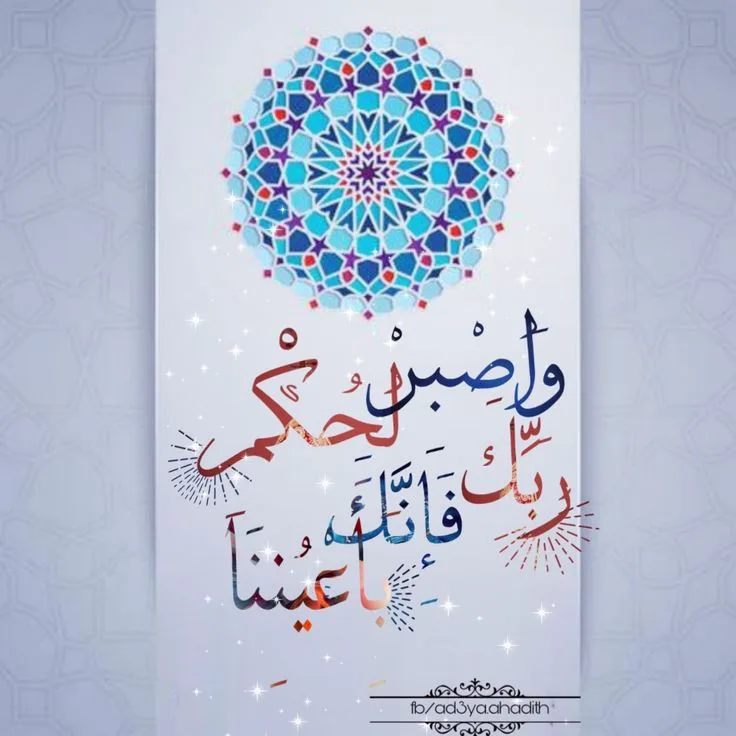 وَاصْبِرْ لِحُكْمِ
رَبِّكَ فَإِنَّكَ
بِأَعْيُنِنَا
fb/ad3ya.ahadith